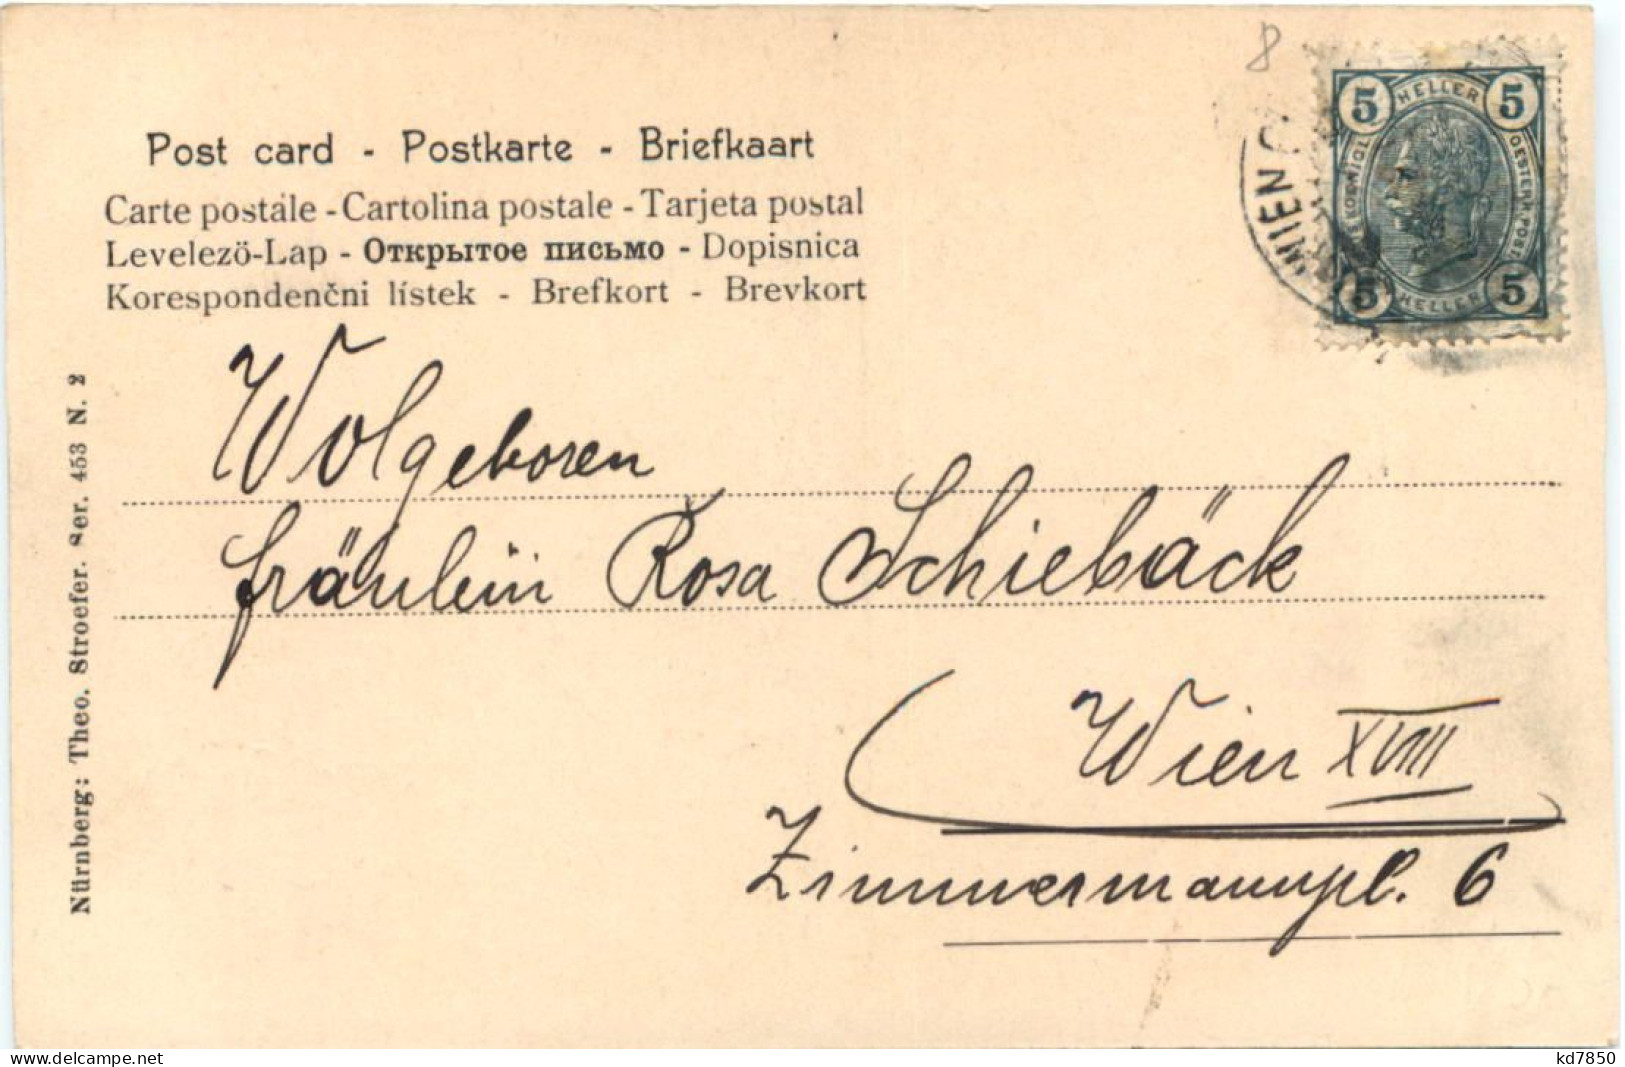 8
Post card - Postkarte - Briefkaart
Carte postale - Cartolina postale - Tarjeta postal
Levelezö-Lap - Открытое письмо - Dopisnica
Korespondenčni lístek - Brefkort - Brevkort
5 HELLER 5
OESTERR. POST
5 HELLER 5
WIEN
Wolgeboren
fräulein Rosa Schiebäck
Wien XVIII
Zimmermannpl. 6
Nürnberg: Theo. Stroefer. Ser. 453 N. 2
delcampe.net
kd7850